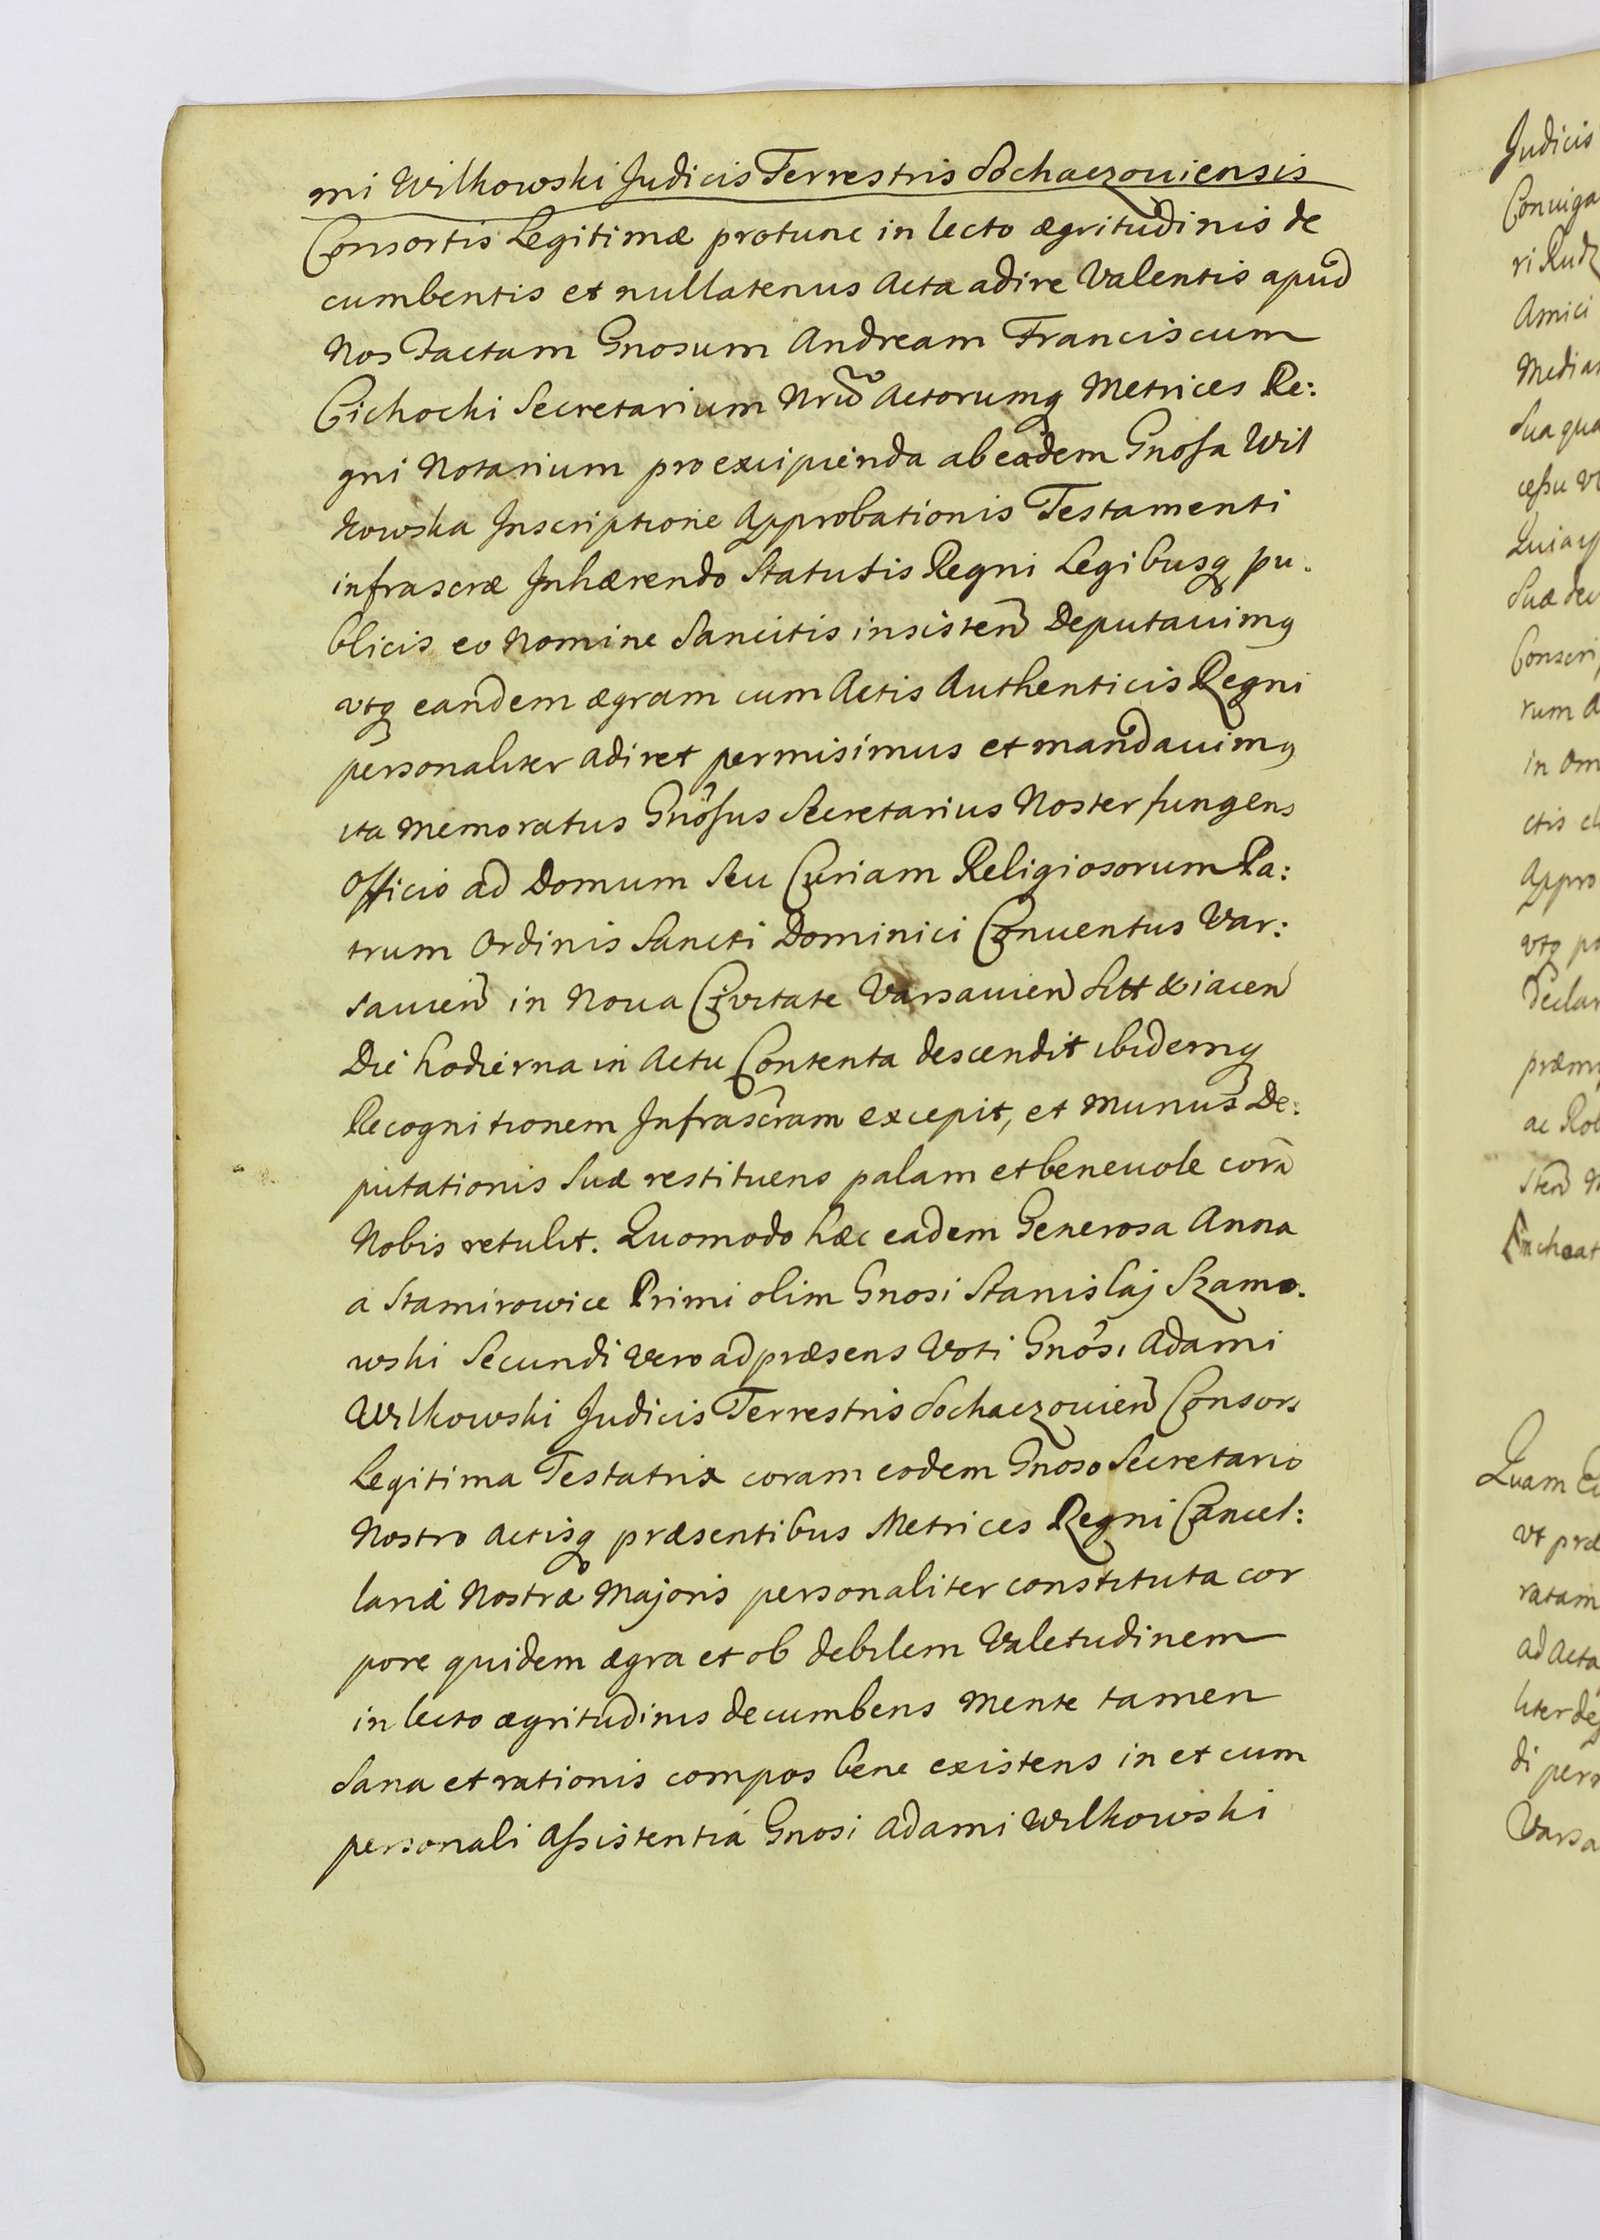 mi Wilkowski Judicis Terrestris Sochaczouiensis
Consortis Legitimæ protunc in lecto ægritudinis de
cumbentis et nullatenus Acta adire Valentis apud
Nos factam Gnosum Andream Franciscum
Cichocki Secretarium Nrũ Actorumq Metrices Re:
gni Notarium pro excipienda ab eadem Gnosa Wil
kowska Inscriptione Approbationis Testamenti
infrascræ Inhærendo Statutis Regni Legibusq pu.
blicis eo Nomine Sancitis insisten̄ Deputauimq
vtq eandem ægram cum Actis Authenticis Regni
personaliter adiret permisimus et mandauimq
ita memoratus Gnosus Secretarius Noster fungens
Officio ad Domum Seu Curiam Religiosorum Pa:
trum Ordinis Sancti Dominici Conuentus Var:
sauien̄ in Noua Ciuitate Varsauien̄ Sitt & iacen̄
Die hodierna in Actu Contenta descendit ibidemq
Recognitionem Infrascram excepit, et munus De:
putationis Suæ restituens palam et beneuole corā
Nobis retulit. Quomodo hæc eadem Generosa Anna
a Stamirowice Primi olim Gnosi Stanislaj Szamo.
wski Secundi Vero ad præsens Voti Gnosi Adami
Wilkowski Judicis Terrestris Sochaczouien̄ Consors
Legitima Testatrix coram eodem Gnoso Secretario
Nostro Actisq præsentibus Metrices Regni Cancel:
lariæ Nostræ Majoris personaliter constituta cor
pore quidem ægra et ob debilem Valetudinem
in lecto ægritudinis decumbens mente tamen
Sana et rationis compos bene existens in et cum
personali Assistentiá Gnosi Adami Wilkowski
Judicis
Amici
Appro